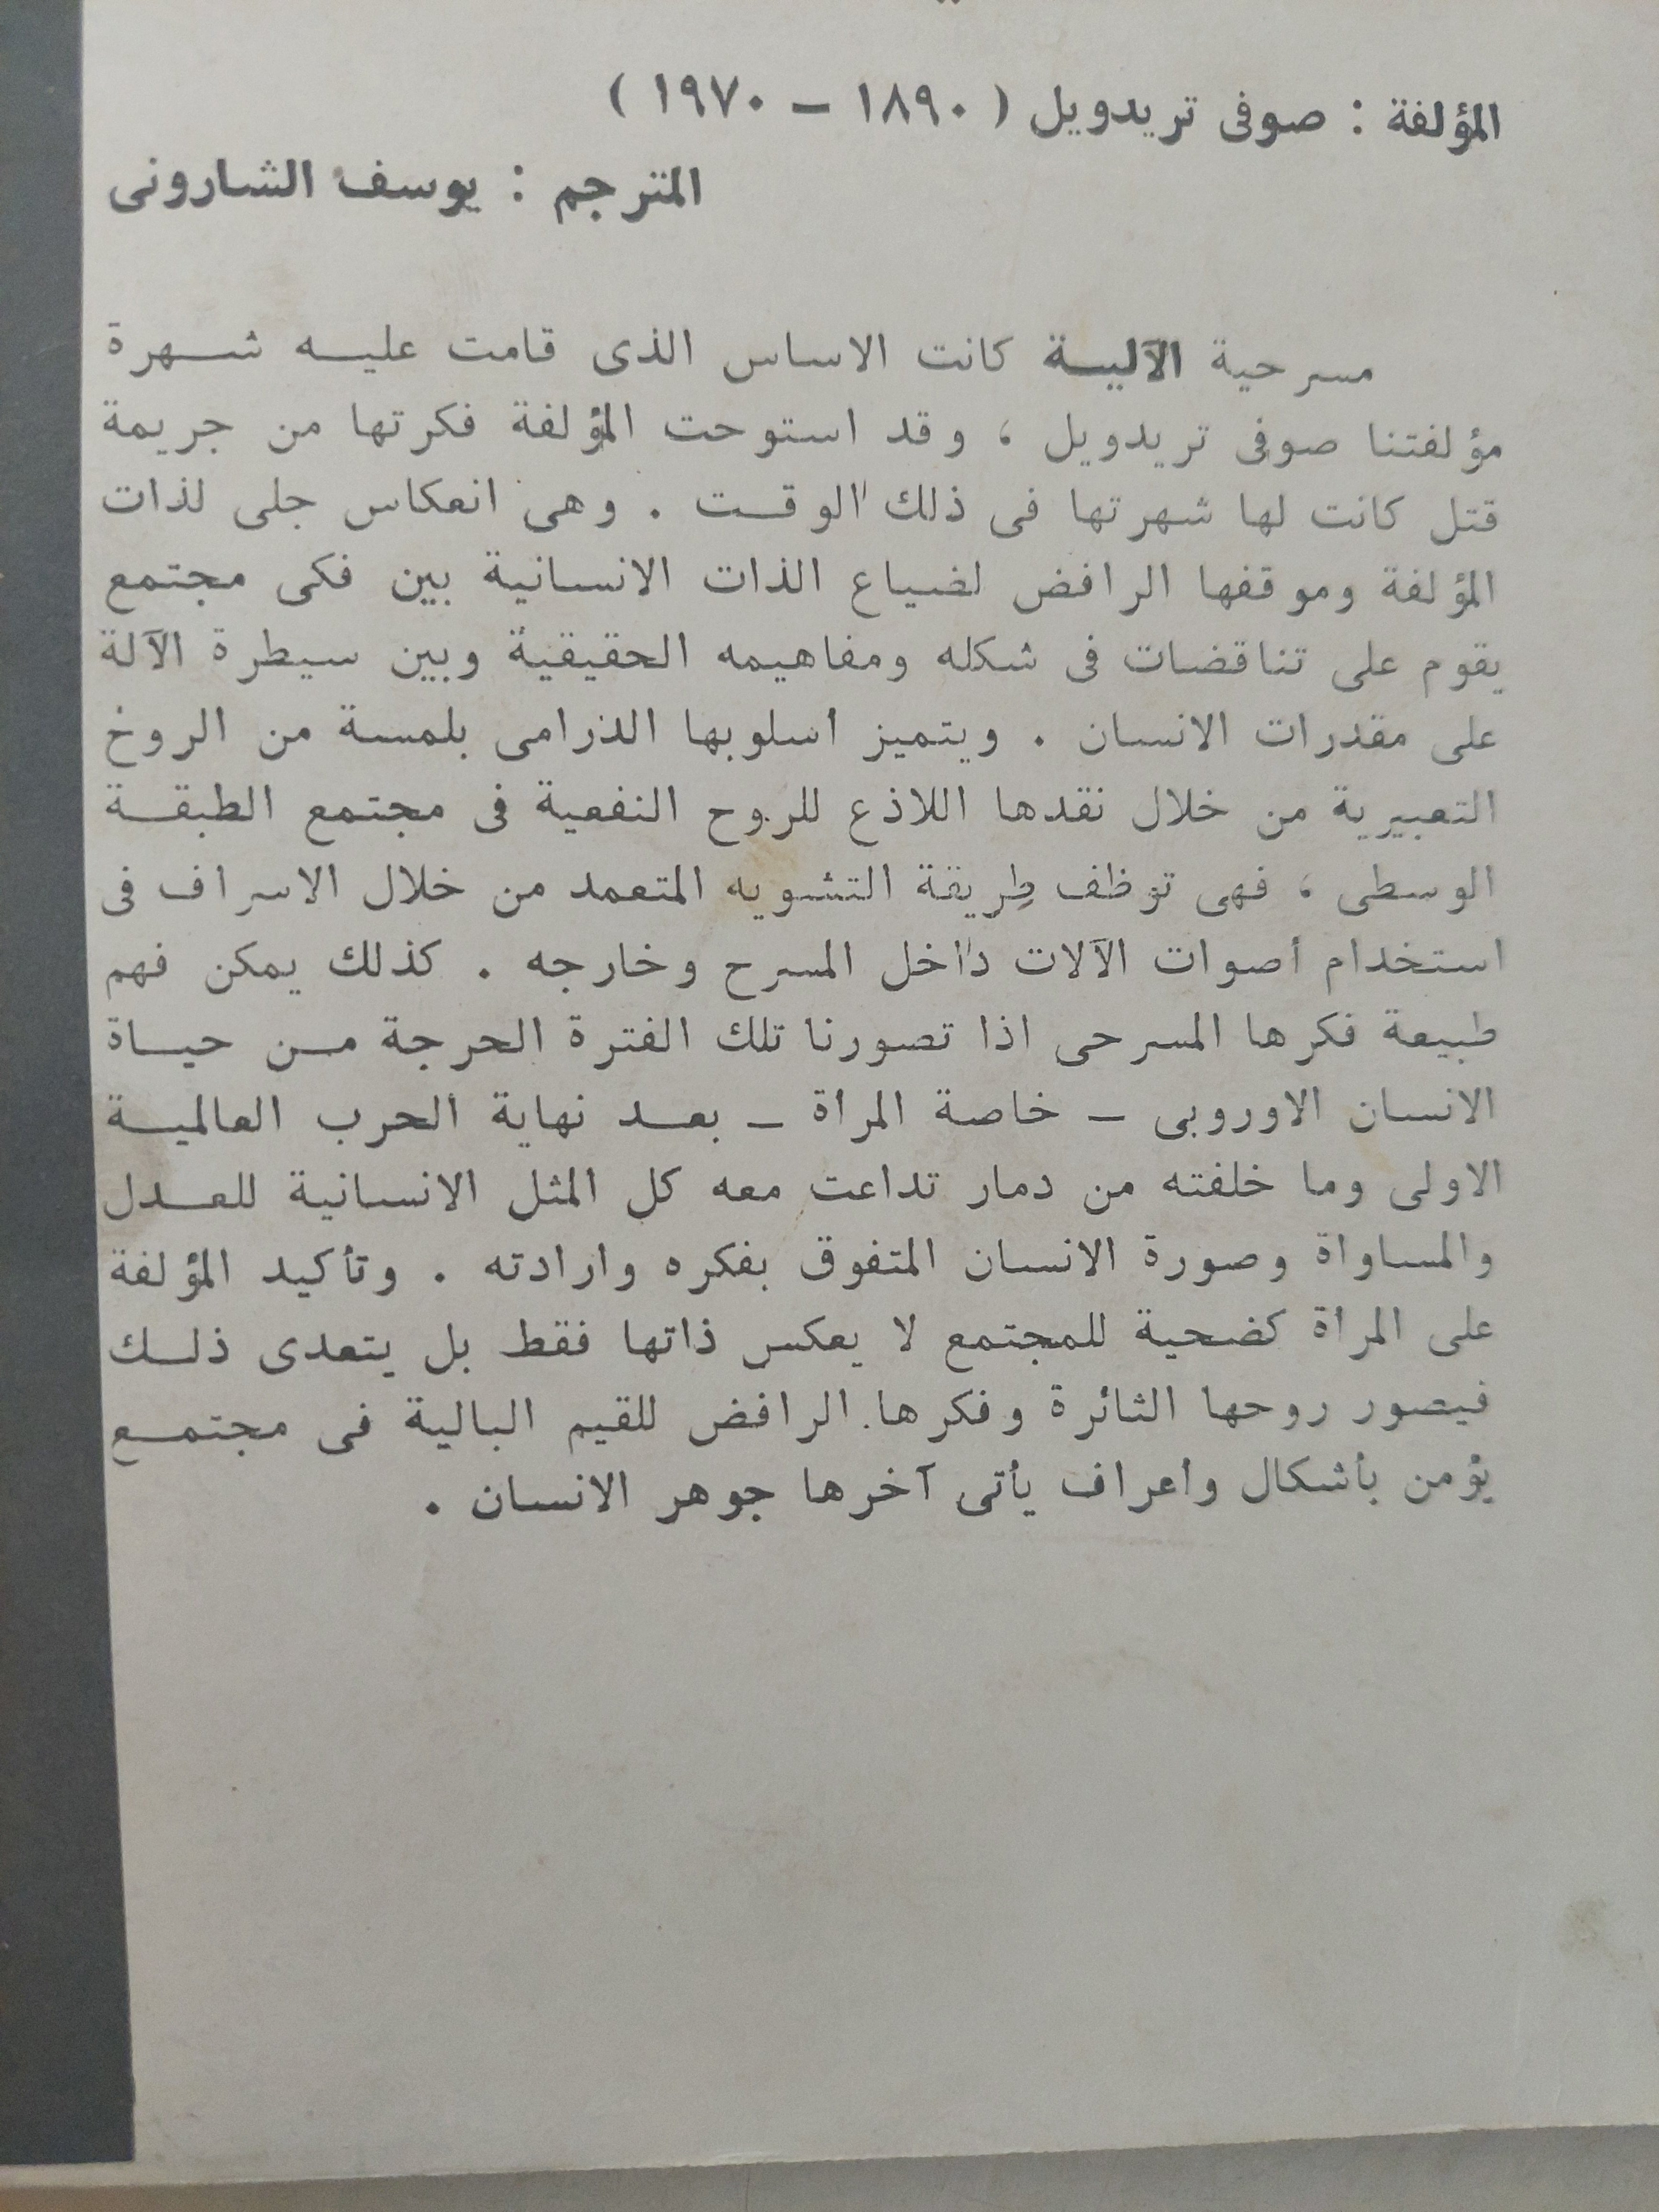 المؤلفة : صوفى تريدويل ( ١٨٩٠ – ١٩٧٠ )
المترجم : يوسف الشارونى
مسرحية الآليــة كانت الاساس الذى قامت عليــه شــهرة
مؤلفتنا صوفى تريدويل ، وقد استوحت المؤلفة فكرتها من جريمة
قتل كانت لها شهرتها فى ذلك الوقــت . وهى انعكاس جلى لذات
المؤلفة وموقفها الرافض لضياع الذات الانسانية بين فكى مجتمع
يقوم على تناقضات فى شكله ومفاهيمه الحقيقية وبين سيطرة الآلة
على مقدرات الانسان . ويتميز أسلوبها الذرامى بلمسة من الروخ
التعبيرية من خلال نقدها اللاذع للروح النفعية فى مجتمع الطبقــة
الوسطى ، فهى توظف طريقة التشويه المتعمد من خلال الاسراف فى
استخدام أصوات الآلات داخل المسرح وخارجه . كذلك يمكن فهم
طبيعة فكرها المسرحى اذا تصورنا تلك الفترة الحرجة مــن حيــاة
الانسان الاوروبى – خاصة المرأة – بعــد نهاية الحرب العالميــة
الاولى وما خلفته من دمار تداعت معه كل المثل الانسانية للعــدل
والمساواة وصورة الانسان المتفوق بفكره وارادته . وتأكيد المؤلفة
على المرأة كضحية للمجتمع لا يعكس ذاتها فقط بل يتعدى ذلــك
فيصور روحها الثائرة وفكرها الرافض للقيم البالية فى مجتمــع
يؤمن بأشكال وأعراف يأتى آخرها جوهر الانسان .